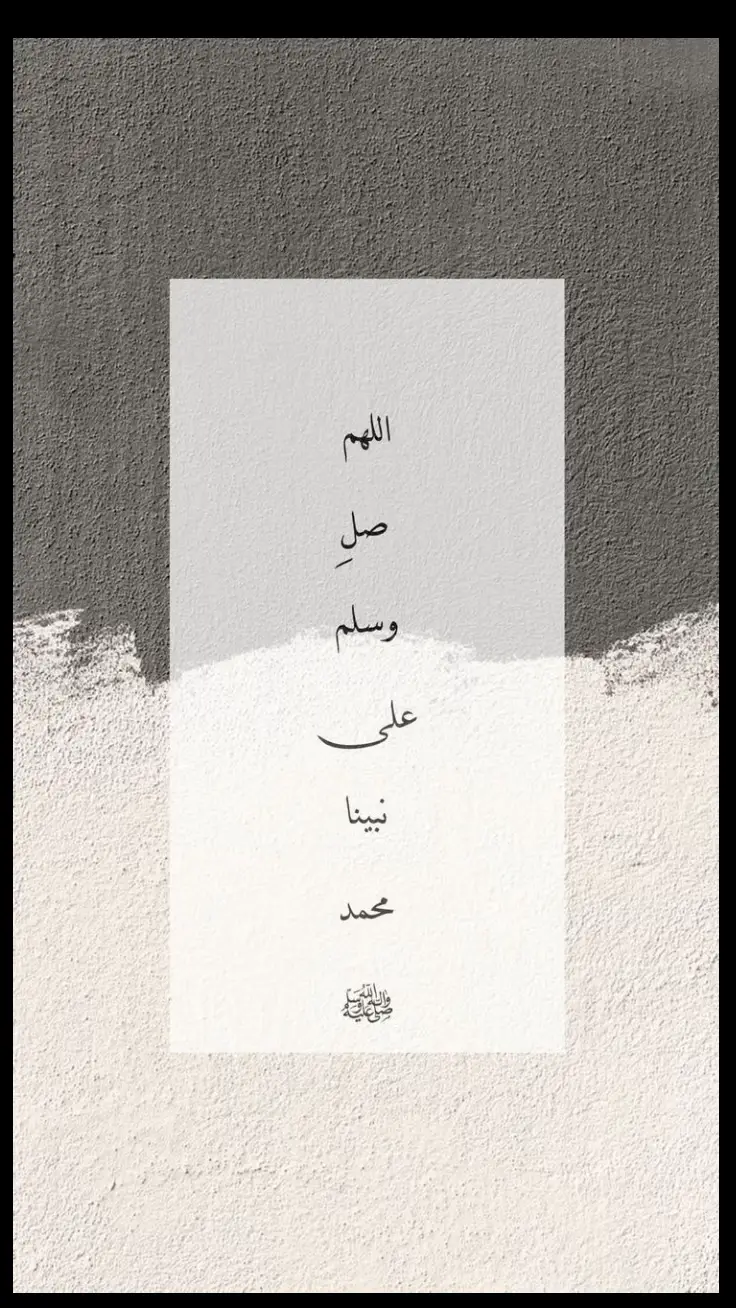 اللهم
صلِ
وسلم
على
نبينا
محمد
ﷺ